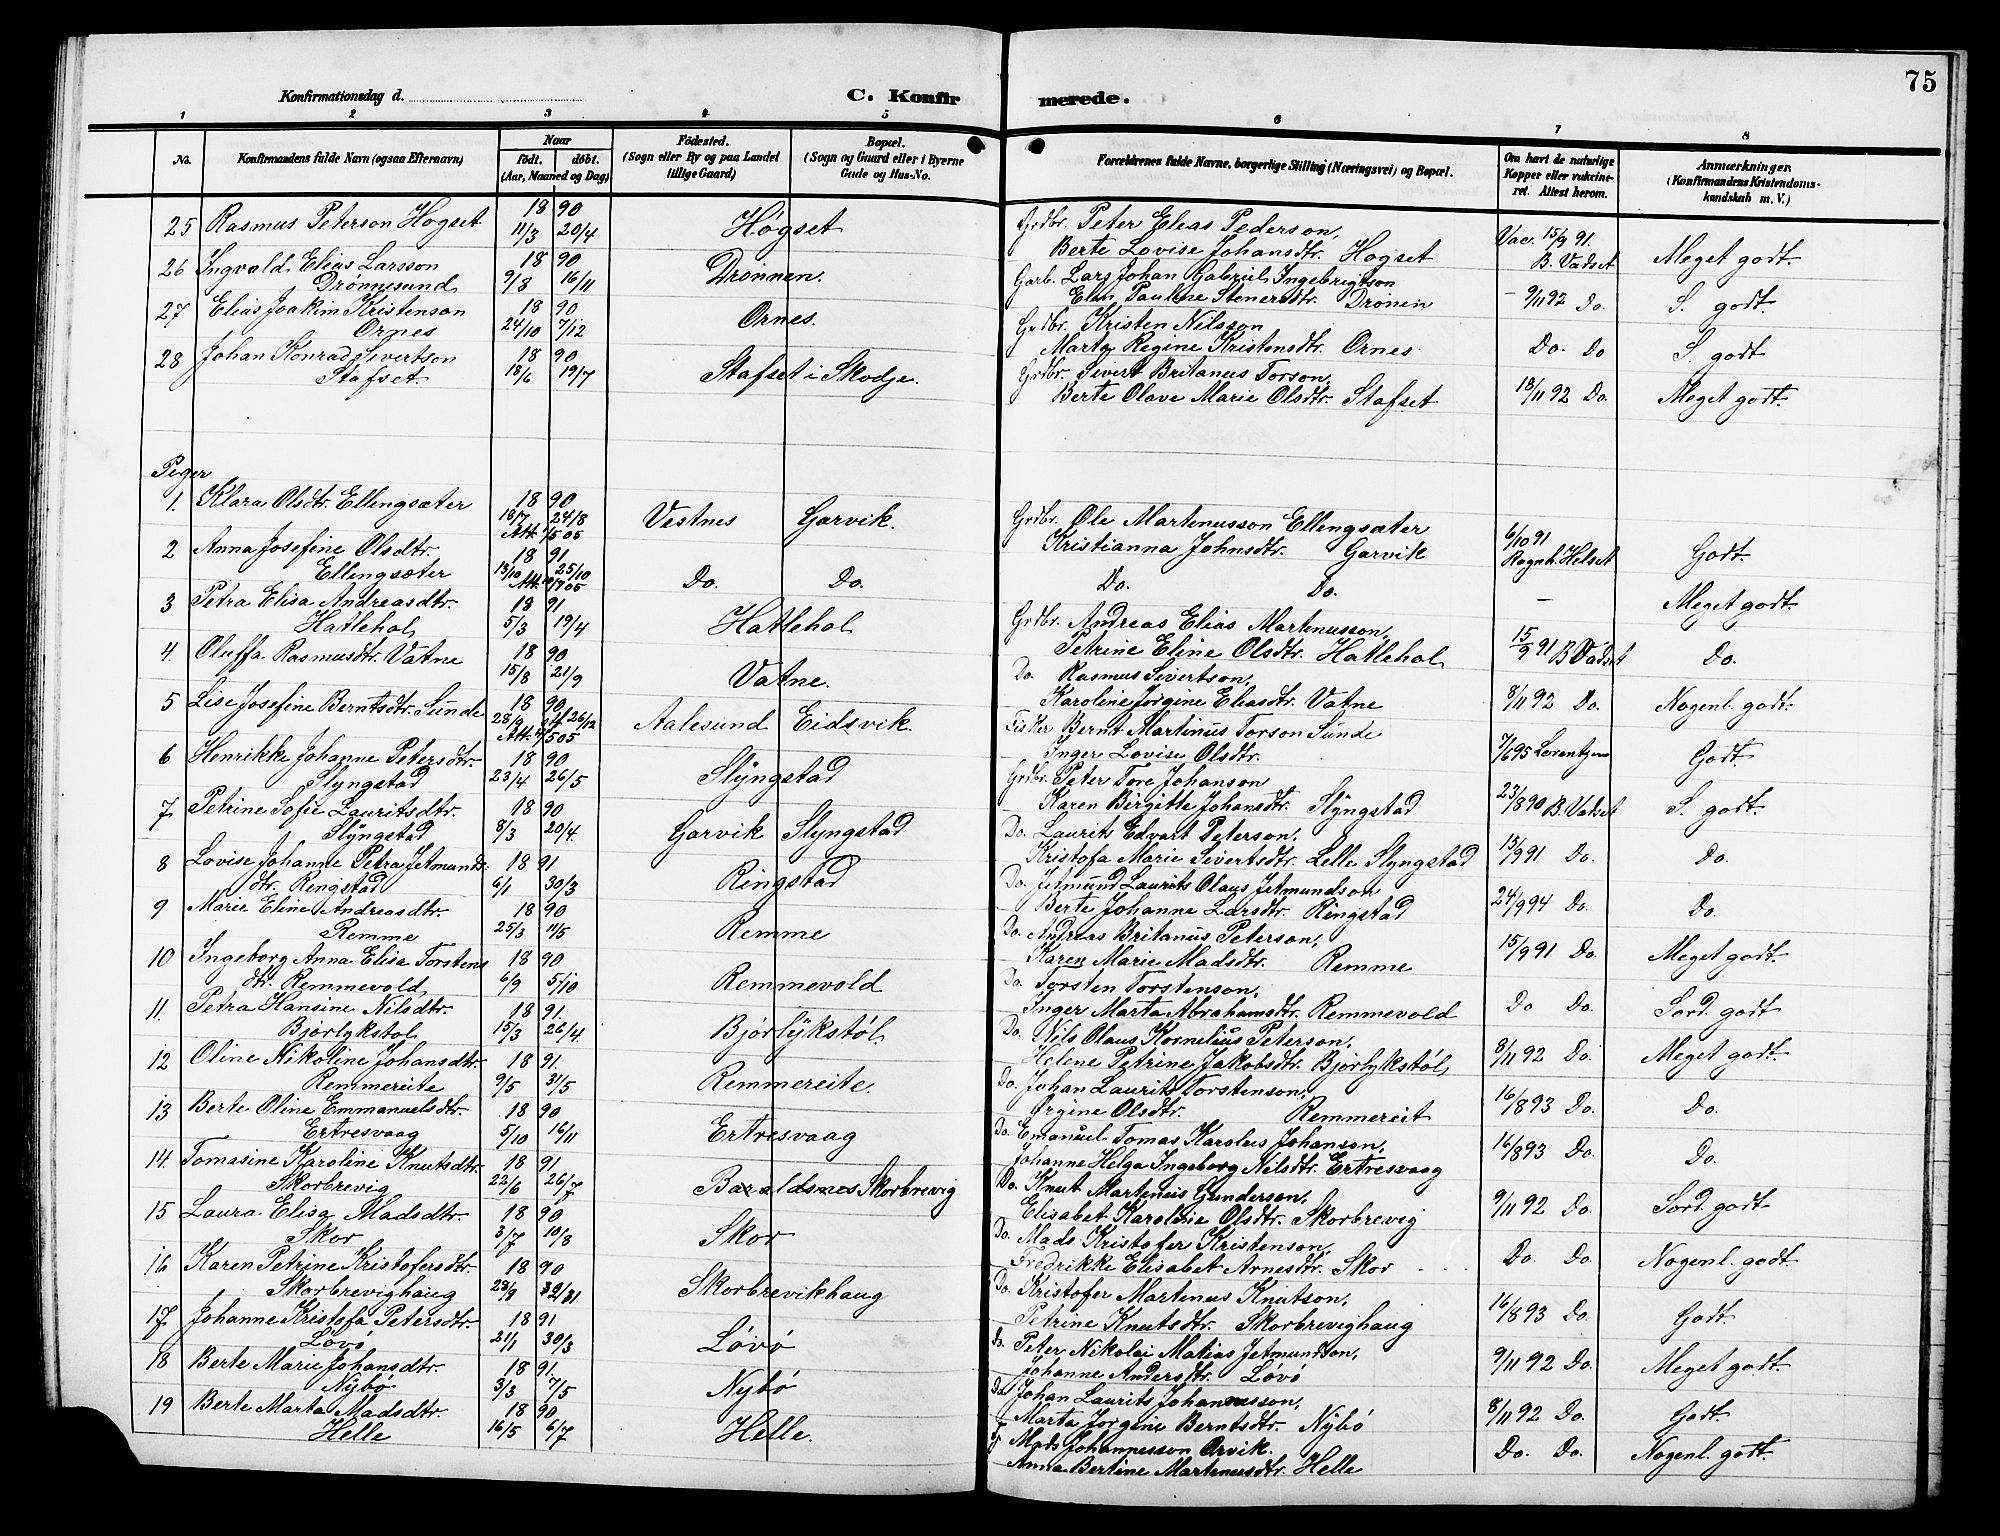 75
Konfirmationsdag d.
C. Konfirmerede.
1 2 3 4 5 6 7 8
No.
Konfirmandens fulde Navn (ogsaa Efternavn)
Naar
födt. döbt.
(Aar, Maaned og Dag)
Födested.
(Sogn eller By og paa Landet
tillige Gaard)
Bopæl.
(Sogn og Gaard eller i Byerne
Gade og Hus-No.
Forældrenes fulde Navne, borgerlige Stilling (Næringsvei) og Bopæl.
Om havt de naturlige
Kopper eller vakcine-
ret. Attest herom.
Anmærkninger.
(Konfirmandens Kristendoms-
kundskab m. V.)
25 Rasmus Peterson Hogset 18 90 11/3 20/4 Høgset
Grdbr. Peter Elias Pederson,
Berte Lovise Johansdtr. Hogset
Vac. 15/9 91. B. Vadset Meget godt.
26 Ingvald Elias Larsson
Drønnesund 18 90 9/8 16/11 Drønnen.
Garb. Lars Johan Gabriel Ingebrigtson
Elen Pauline Stenersdtr. Drønen
– 9/11 92 Do. S. godt
27 Elias Joakim Kristenson
Ornes 18 90 24/10 7/12 Ornes.
Grdbr. Kristen Nilsson,
Marta Regine Kristensdtr. Ornes
Do. Do S. godt
28 Johan Konrad Sivertson
Stafset. 18 90 18/6 19/7 Stafset i Skodje.
Grdbr. Sivert Britanus Torson,
Berte Olave Marie Olsdtr. Stafset
18/11 92 Do. Meget godt.
Piger
1. Klara Olsdtr. Ellengsæter 18 90 18/7 24/8 Vestnes Garvik.
Grdbr. Ole Martenusson Ellengsæter
Kristianna Johnsdtr. Garvik
6/10 91 Ragnh. Helset Godt.
2 Anna Josefine Olsdtr.
Ellengsæter 18 91 13/10 25/10 Do. Do.
Do. Do.
– Meget godt.
3 Petra Elisa Andreasdtr.
Hatlehol 18 91 5/3 19/4 Hatlehol
Grdbr. Andreas Elias Martenusson,
Petrine Eline Olsdtr. Hatlehol
15/9 91 B Vadset Do.
4. Oluffa Rasmusdtr. Vatne 18 90 15/8 21/9 Vatne.
Do. Rasmus Sivertson,
Karoline Jørgine Eliasdtr. Vatne
8/11 92 Do. Nogenl. godt.
5 Lise Josefine Berntsdtr. Sunde 18 90 28/9 26/12 Aalesund Eidsvik.
Fisker Bernt Martinus Torson Sunde
Inger Lovise Olsdtr.
7/6 95 Lorentzen Godt.
6 Henrikke Johanne Petersdtr.
Slyngstad 18 90 23/4 26/5 Slyngstad
Grdbr. Peter Tore Johanson
Karen Birgitte Johansdtr. Slyngstad
23/8 90 B. Vadset S. godt
7. Petrine Sofie Lauritsdtr.
Slyngstad 18 90 8/3 20/4. Garvik Slyngstad
Do. Laurits Edvart Peterson,
Kristofa Marie Sivertsdtr. Lelle Slyngstad
15/9 91 Do. Do.
8 Lovise Johanne Petra Jetmunds-
dtr. Ringstad 18 91 6/1 30/3 Ringstad
Do. Jetmund Laurits Olaus Jetmundson
Berte Johanne Larsdtr. Ringstad
24/9 94 Do. Do.
9 Marie Eline Andreasdtr.
Remme 18 90 25/3 11/5 Remme
Do. Andreas Britanus Peterson,
Karen Marie Madsdtr. Remme
15/9 91 Do. Meget godt.
10 Ingeborg Anna Elisa Torstens
dtr. Remmevold 18 90 6/9 5/10 Remmevold
Do. Torsten Torstenson,
Inger Marta Abrahamsdtr. Remmevold
Do Do. Sord. godt
11. Petra Hansine Nilsdtr.
Bjørlykstøl 18 91. 15/3 26/4. Bjørlykstøl
Do. Nils Olaus Kornelius Peterson,
Helene Petrine Jakobsdtr. Bjørlykstøl
8/11 92 Do. Meget godt.
12 Oline Nikoline Johansdtr.
Remmereite 18 91. 9/5 31/5 Remmereite.
Do. Johan Laurits Torstenson,
Ørgine Olsdtr. Remmereit
16/8 93 Do. Do.
13 Berte Oline Emmanuelsdtr.
Ertresvaag 18 90 5/10 16/11 Ertresvaag
Do. Emanuel Tomas Karolus Johanson,
Johanne Helga Ingeborg Nilsdtr. Ertresvaag
16/8 93 Do. Do.
14. Tomasine Karoline Knutsdtr.
Skorbrevig 18 91 22/6 26/7 Baraldsnes Skorbrevig
Do. Knut Martenius Gunderson,
Elisabet Karoline Olsdtr. Skorbrevig
9/11 92 Do. Sord. godt
15 Laura Elisa Madsdtr.
Skor 18 90 3/7 10/8 Skor
Do. Mads Kristofer Kristenson,
Fredrikke Elisabet Arnesdtr. Skor
Do. Do. Nogenl. godt
16 Karen Petrine Kristofersdtr.
Skorbrevighaug 18 90 Skorbrevikhaug
Do. Kristofer Martenus Knutson,
Petrine Knutsdtr. Skorbrevighaug
16/8 93 Do. Godt.
17. Johanne Kristofa Petersdtr.
Løvø 18 91 21/1 30/3 Løvø
Do Peter Nikolai Matias Jetmundson,
Johanne Andersdtr. Løvø
9/11 92 Do. Meget godt.
18 Berte Marie Johansdtr.
Nybø 18 91. 3/3 7/5 Nybø
Do Johan Laurits Johannesson,
Marta Jorgine Berntsdtr. Nybø
8/11 92 Do. Godt.
19 Berte Marta Madsdtr.
Helle 18 90 16/5 6/7 Helle.
Mads Johannesson Orvik.
Anna Bertine Martenusdtr. Helle
Do. Do. Nogenl. godt.